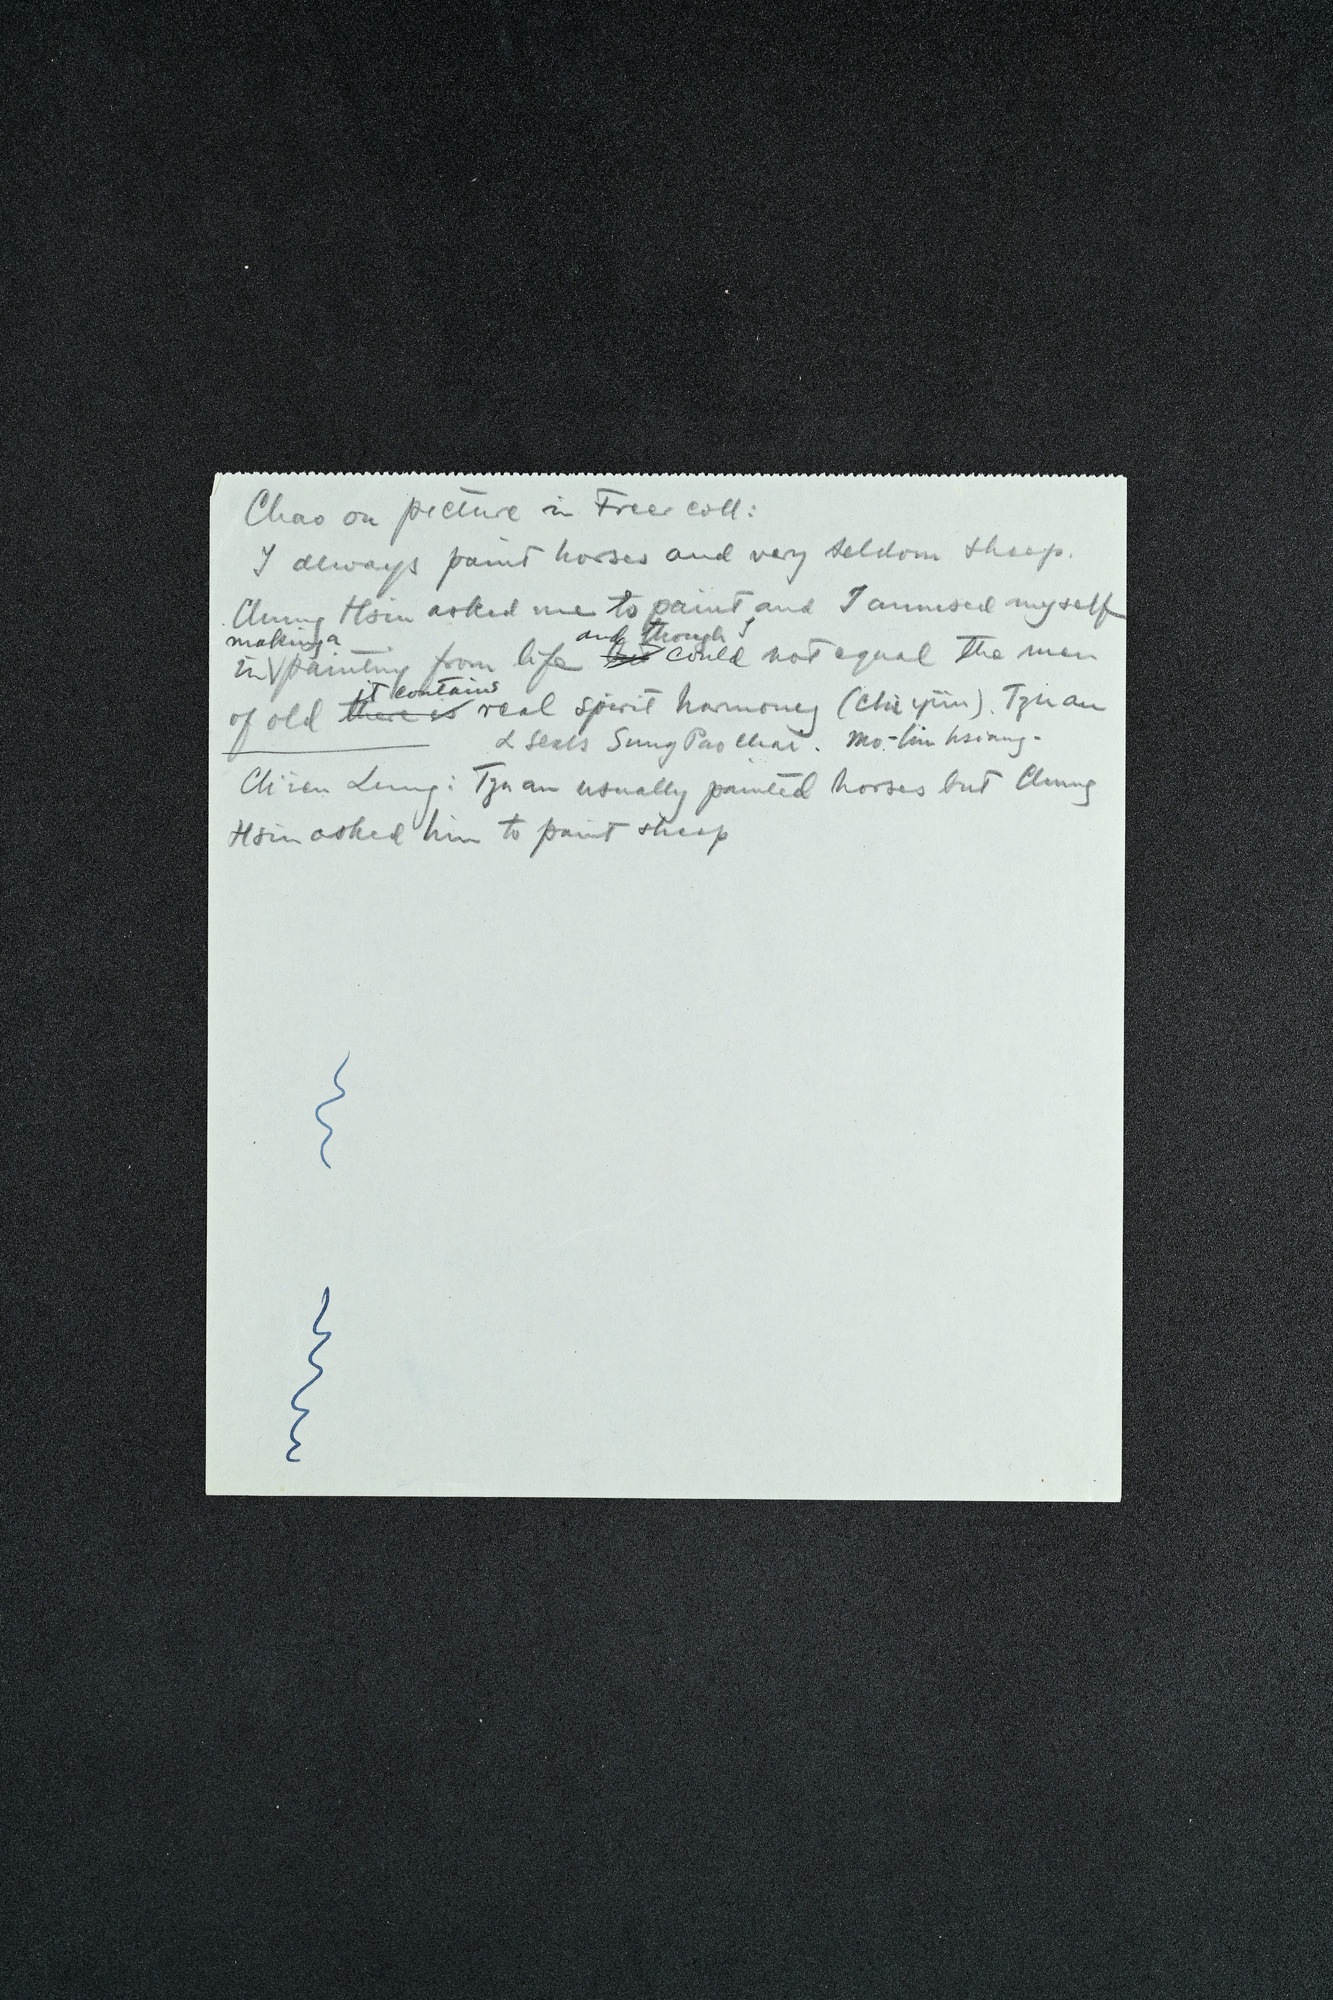 Chao on picture in Freer coll:
I always paint horses and very seldom sheep.
Chung Hsin asked me to paint and I amused myself
making a
and though I
in painting from life but could not equal the men
it contains
of old there is real spirit harmony (chi yün). Tzu an
2 seals Sung Pao chai. Mo-lin hsiang-
Ch'ien Lung: Tzu an usually painted horses but Chung
Hsin asked him to paint sheep